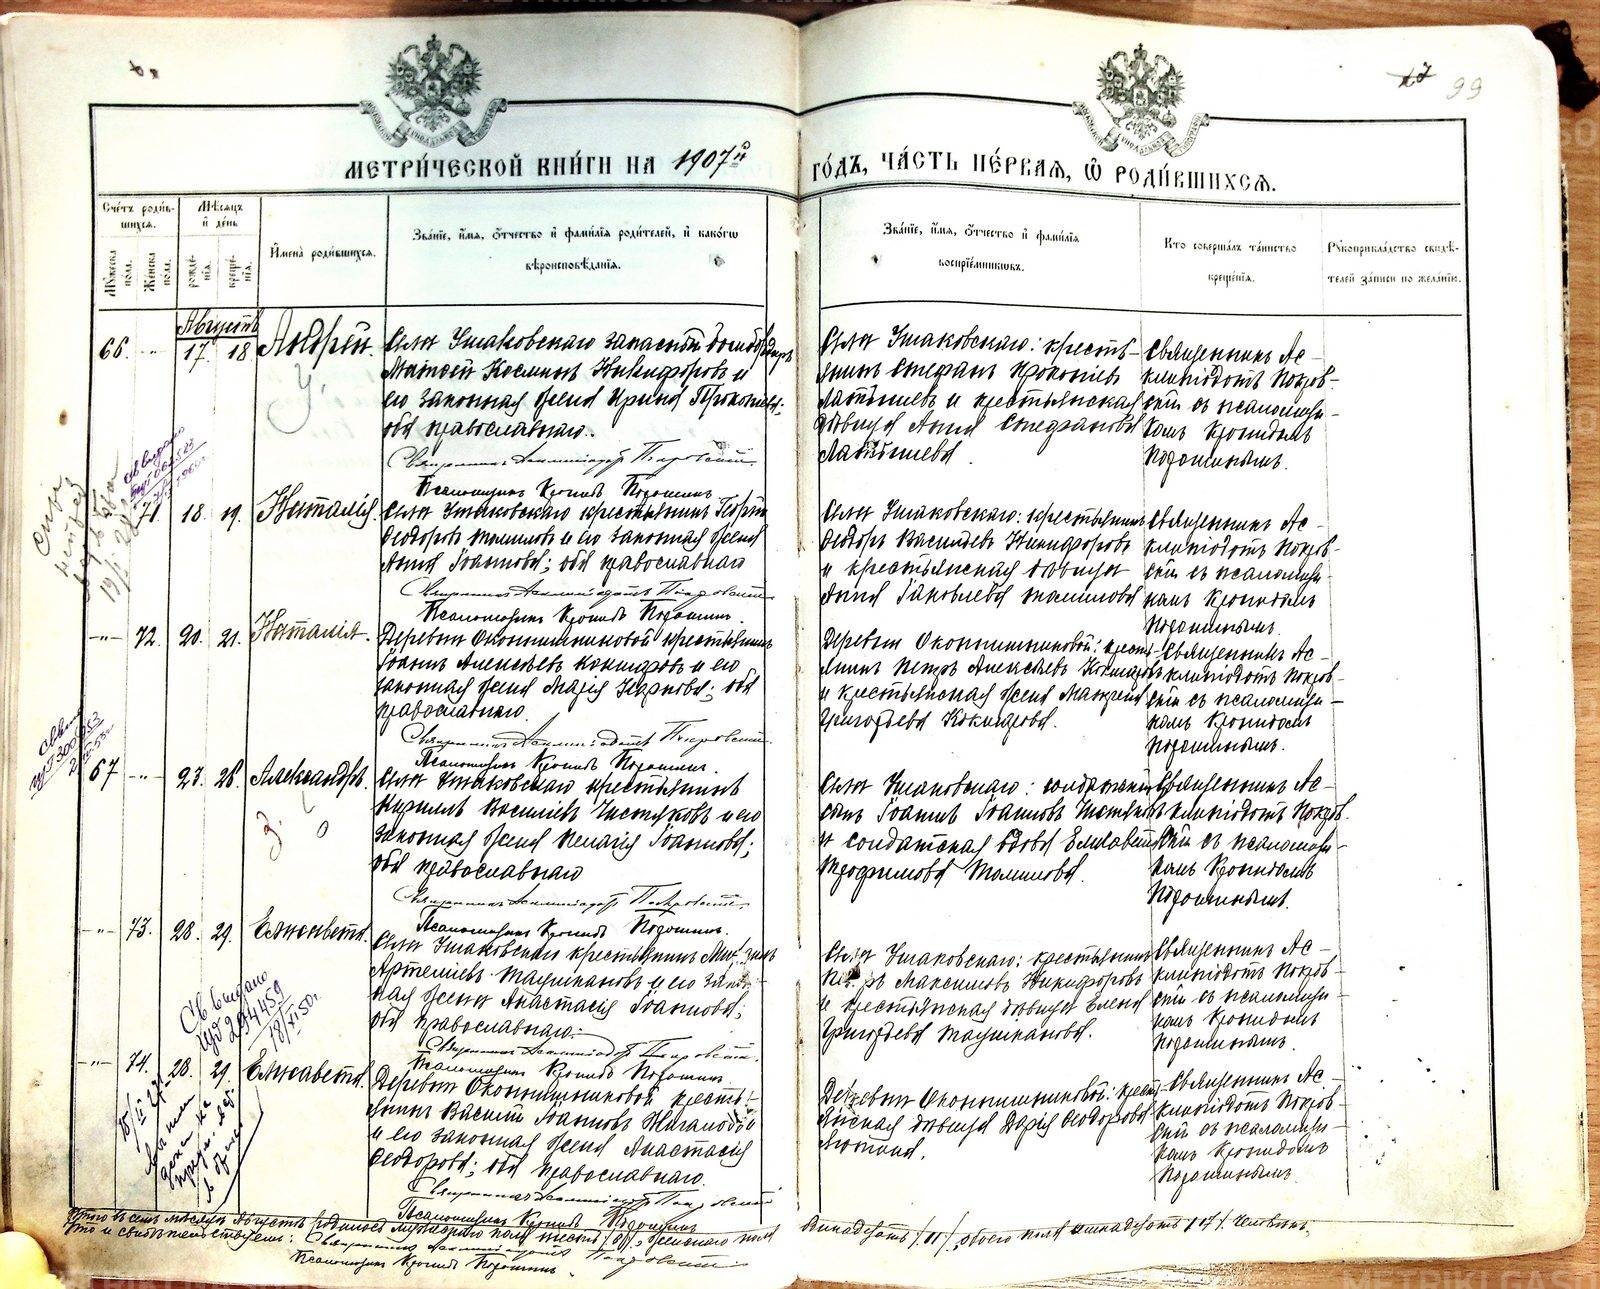 99
МЕТРИ́ЧЕСКОЙ КНИ́ГИ НА 1907й ГО́ДЪ, ЧА́СТЬ ПЕ́РВАЯ, Ѡ РОДИ́ВШИХСЯ.
Сче́тъ роди́в-
шихся.
Мѣ́сяцъ
и де́нь
Му́жеска
пола.
Же́нска
по́ла.
рожде́-
нія.
креще́-
нія.
Имена̀ роди́вшихся.
Зва́ніе, и́мя, о́тчество и фами́лія роди́телей, и како́гѡ
вѣроисповѣ́данія.
Зва́ніе, и́мя, о́тчество и фами́лія
воспріе́мниковъ.
Кто соверша́лъ та́инство
креще́нія.
Рукоприкла́дство свидѣ́-
телей за́писи по жела́нію.
Августъ
66. -"- 17. 18 Андрей.
Села Ушаковскаго запасный бомбардиръ
Матѳей Косминъ Никифоровъ и
его законная жена Ирина Прокопьева;
оба православнаго.
Священникъ Асклипіодотъ Покровскій.
Псаломщикъ Кронидъ Порошинъ.
Села Ушаковскаго: кресть-
янинъ Стефанъ Прокопьевъ
Латышевъ и крестьянская
дѣвица Анна Стефанова
Латышева.
Священникъ Ас-
клипіодотъ Покров-
скій съ псаломщи-
комъ Кронидомъ
Порошинымъ.
71. 18. 19. Наталія.
Села Ушаковскаго крестьянинъ Георгій
Ѳеодоровъ Томиловъ и его законная жена
Анна Іоаннова; оба православнаго
Священникъ Асклипіодотъ Покровскій
Псаломщикъ Кронидъ Порошин.
Села Ушаковскаго: крестьянинъ
Ѳеодоръ Васильевъ Никифоровъ
и крестьянская дѣвица
Анна Іаковлева Томилова
Священникъ Ас-
клипіодотъ Покров-
скій съ псаломщи-
комъ Кронидомъ
Порошинымъ.
-"- 72. 20. 21. Наталія.
Деревни Оконишниковой крестьянинъ
Іоаннъ Алексѣевъ Кокшаровъ и его
законная жена Марія Карпова; оба
православнаго.
Священникъ Асклипіодотъ Покровскій.
Псаломщикъ Кронидъ Порошин.
Деревни Оконишниковой: кресть-
янинъ Петръ Алексѣевъ Кокшаровъ
и крестьянская жена
Григорьева Кокшарова.
Священникъ Ас-
клипіодотъ Покров-
скій съ псаломщи-
комъ Кронидомъ
Порошинымъ.
67 -"- 23. 26. Александръ.
Села Ушаковскаго крестьянинъ
Кириллъ Васильевъ Чистяковъ и его
законная жена Пелагія Іоаннова;
оба православнаго
Священникъ Асклипіодотъ Покровскій.
Псаломщикъ Кронидъ Порошин.
Села Ушаковскаго:
сынъ Іоаннъ Іоанновъ Чистяковъ
и солдатская вдова Елисавета
Трофимова Томилова.
Священникъ Ас-
клипіодотъ Покров-
скій съ псаломщи-
комъ Кронидомъ
Порошинымъ.
-"- 73. 28. 29. Елисавета.
Села Ушаковскаго крестьянинъ Михаилъ
Артеміевъ Таушкановъ и его закон-
ная жена Анастасія Іоаннова;
оба православнаго.
Священникъ Асклипіодотъ Покровскій.
Псаломщикъ Кронидъ Порошин.
Села Ушаковскаго: крестьянинъ
Петръ Максимовъ Никифоровъ
и крестьянская дѣвица Елена
Григорьева Таушканова.
Священникъ Ас-
клипіодотъ Покров-
скій съ псаломщи-
комъ Кронидомъ
Порошинымъ.
Св выдано
294459
18/XI 50г.
-"- 74. 28. 29. Елисавета.
Деревни Оконишниковой кресть-
янинъ Василій Іоанновъ
и его законная жена Анастасія
Ѳеодорова; оба православнаго.
Священникъ Асклипіодотъ Покровскій
Псаломщикъ Кронидъ Порошинъ
Деревни Оконишниковой: кресть-
янская дѣвица Дарія Ѳеодорова
Священникъ Ас-
клипіодотъ Покров-
скій съ псаломщи-
комъ Кронидомъ
Порошинымъ.
Итого въ семъ мѣсяцѣ Августѣ родилося мужескаго пола шесть /6/, женскаго пола одинадцать /11/, обоего пола семнадцать /17/. Человѣкъ,
Что и свидѣтельствуемъ: Священникъ Асклипіодотъ Покровскій
Псаломщикъ Кронидъ Порошин.